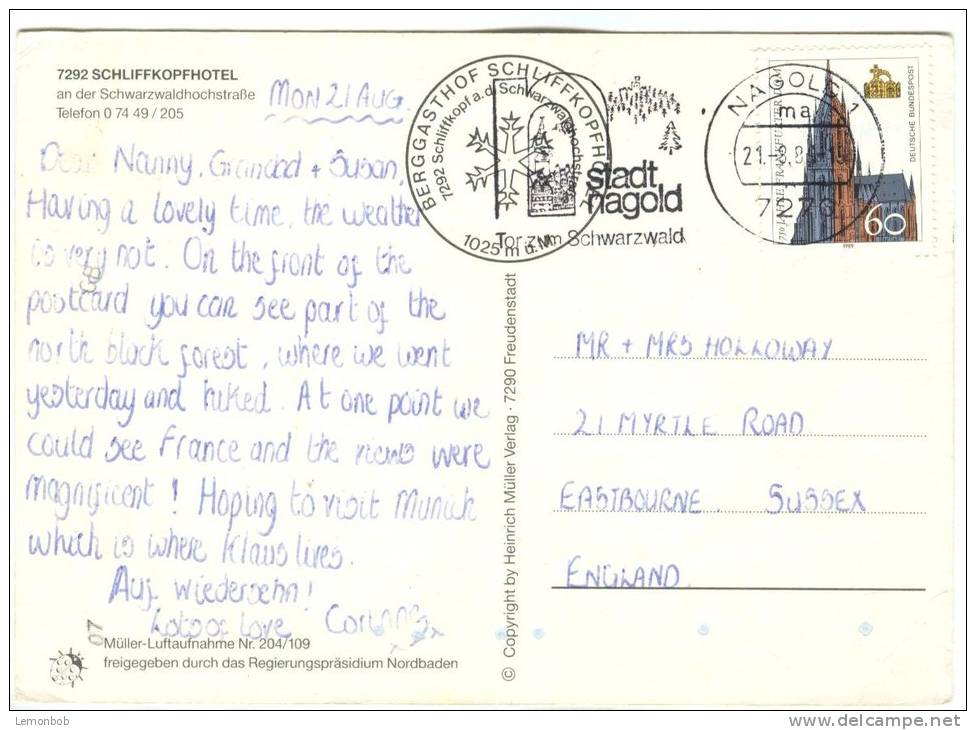 7292 SCHLIFFKOPFHOTEL
an der Schwarzwaldhochstraße
Telefon 0 74 49 / 205
MON 21 AUG
Dear Nanny, Grandad + Susan,
Having a lovely time, the weather
is very hot. On the front of the
postcard you can see part of the
north black forest, where we went
yesterday and hiked. At one point we
could see France and the views were
magnificent! Hoping to visit Munich
which is where Klaus lives.
Auf wiedersehn!
Lots of love Corinne x
07
Müller-Luftaufnahme Nr. 204/109
freigegeben durch das Regierungspräsidium Nordbaden
BERGGASTHOF SCHLIFFKOPFHOTEL
7292 Schliffkopf a.d. Schwarzwaldhochstraße
1025 m ü.M.
stadt
nagold
Tor zum Schwarzwald
NAGOLD 1
ma
21.-8.89
7270
DEUTSCHE BUNDESPOST
60
1989
© Copyright by Heinrich Müller Verlag · 7290 Freudenstadt
MR + MRS HOLLOWAY
21 MYRTLE ROAD
EASTBOURNE. SUSSEX
ENGLAND.
Lemonbob
www.delcampe.net